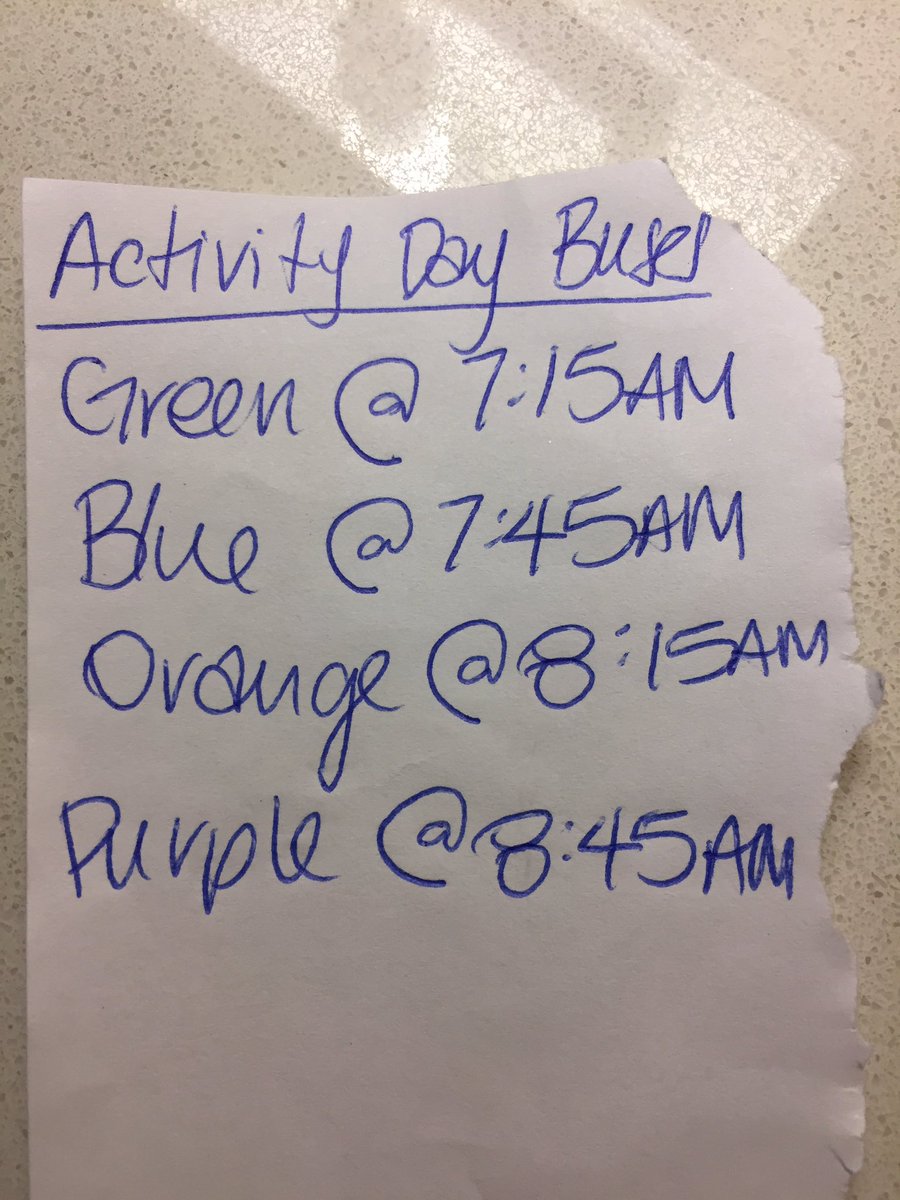 Activity Day Buses
Green @ 7:15AM
Blue @ 7:45AM
Orange @ 8:15AM
Purple @ 8:45AM